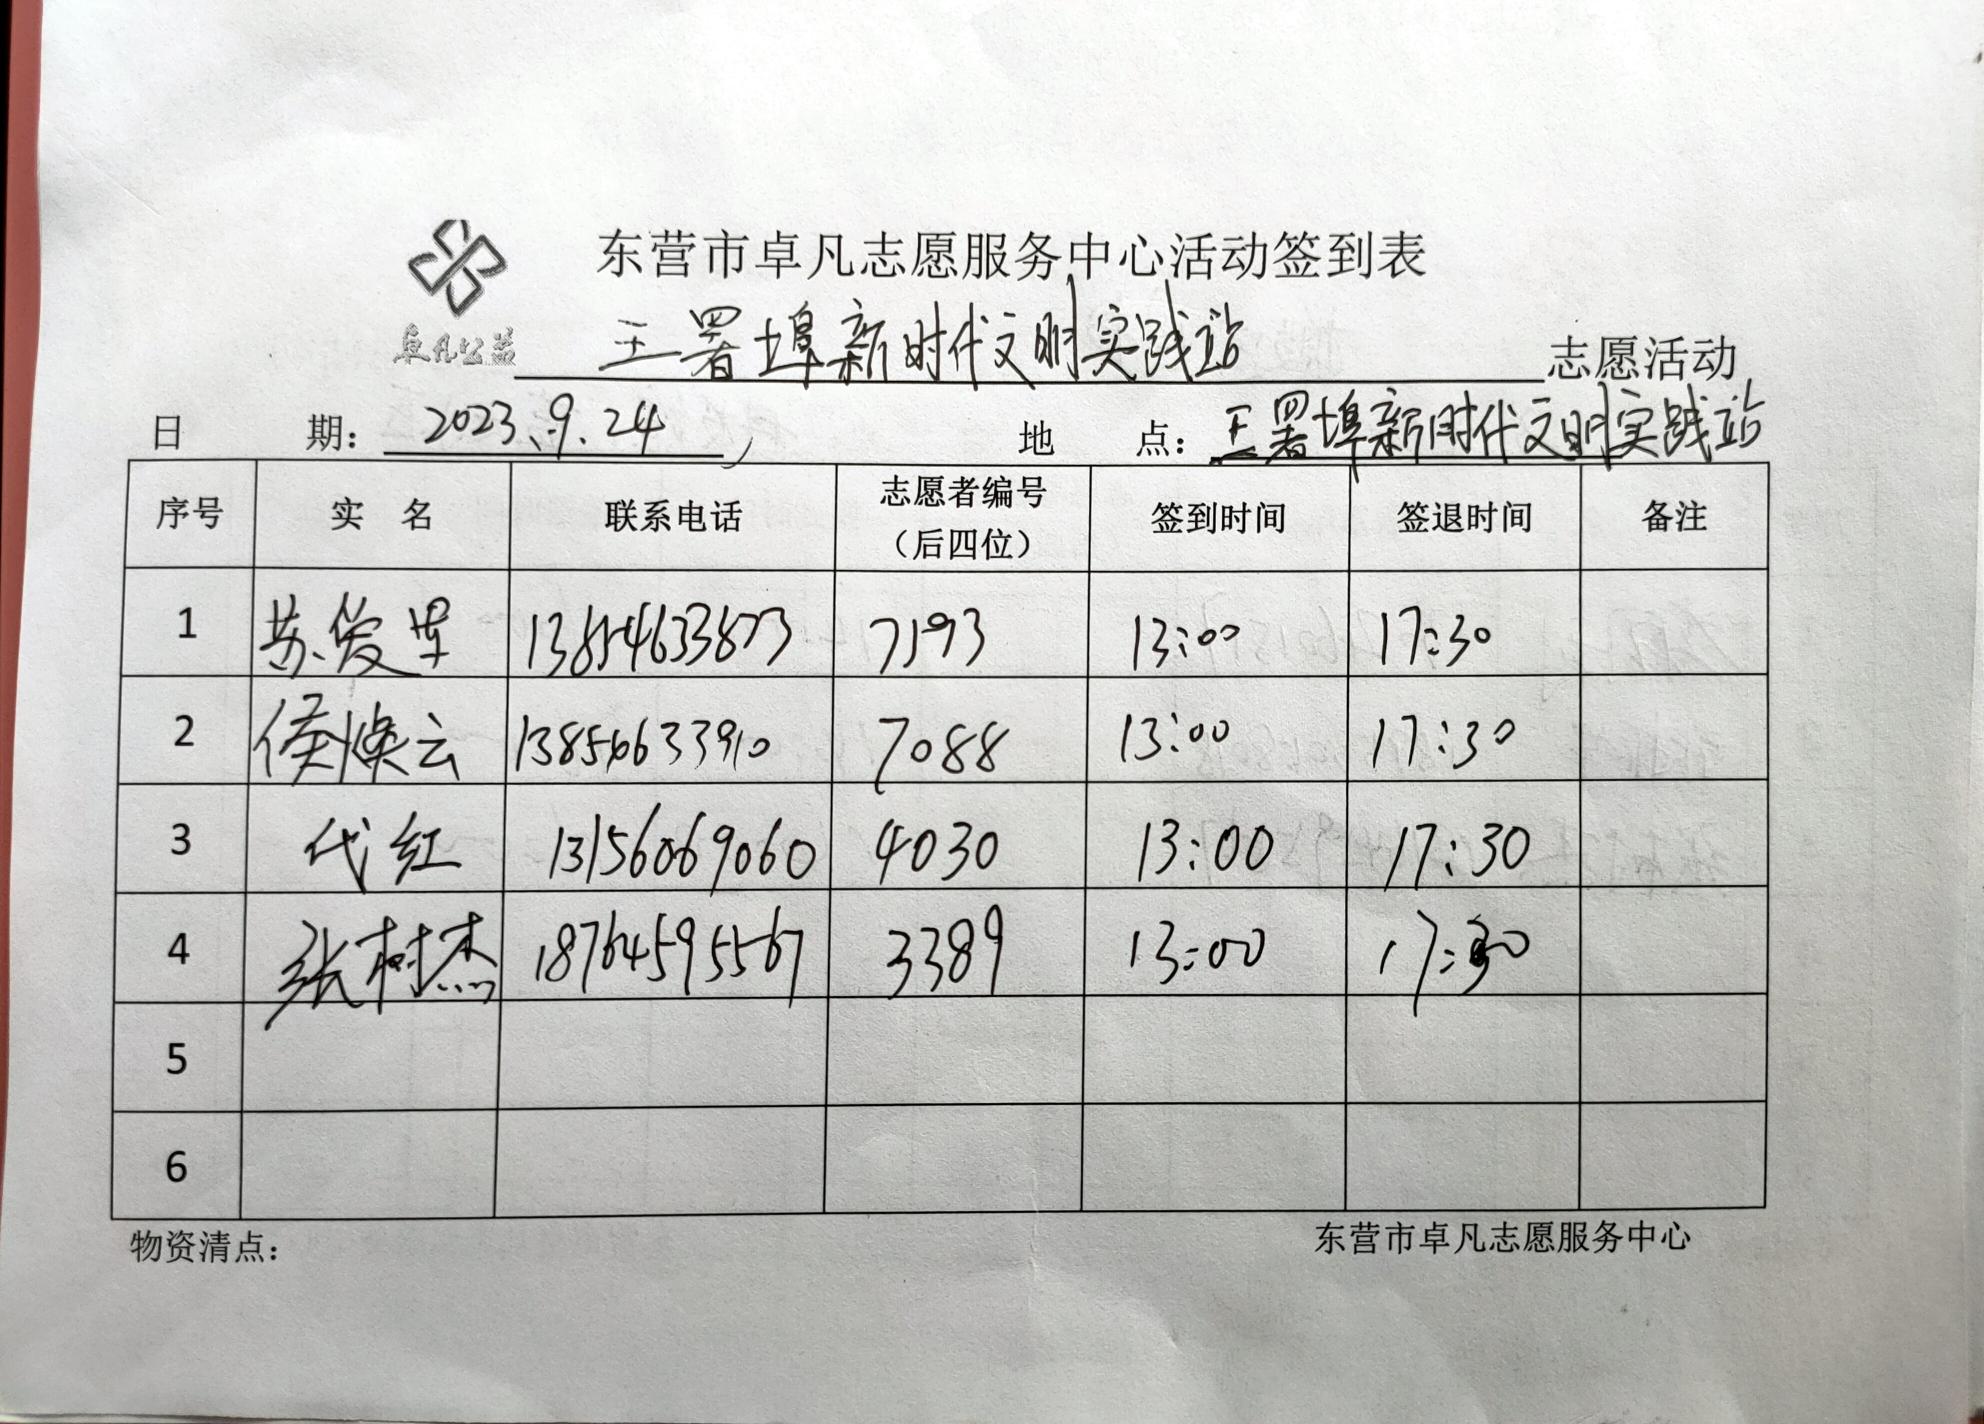 东营市卓凡志愿服务中心活动签到表
卓凡公益
王署埠新时代文明实践站 志愿活动
日 期: 2023.9.24 地 点: 王署埠新时代文明实践站
序号 实 名 联系电话 志愿者编号（后四位） 签到时间 签退时间 备注
1 苏俊军 13854633873 7193 13:00 17:30
2 侯焕云 13854633910 7088 13:00 17:30
3 代红 13156069060 4030 13:00 17:30
4 张树杰 18764595567 3389 13:00 17:30
5
6
物资清点: 东营市卓凡志愿服务中心